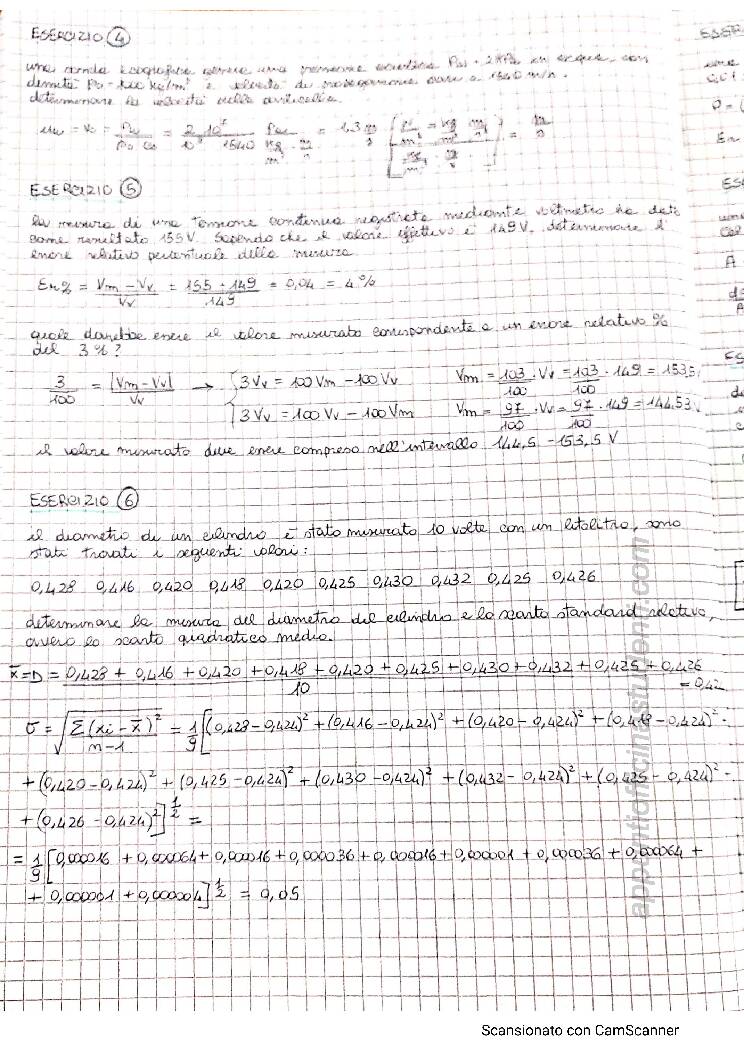 ESERCIZIO 4
una sonda ecografica genera una pressione acustica Pac = 2 MPa in acqua, con
densità ρ0 = 1000 kg/m³ e velocità di propagazione pari a 1540 m/s.
determinare la velocità della particella.
= V0 = = 2·10⁶ / 10³ 1540 = 1,3 m/s = m/s
ESERCIZIO 5
la misura di una tensione continua registrata mediante voltmetro ha dato
come risultato 155V. Sapendo che il valore effettivo è 149V, determinare l'
errore relativo percentuale della misura
Er% = Vm - Vv / Vv = 155 - 149 / 149 = 0,04 = 4%
quale dovrebbe essere il valore misurato corrispondente a un errore relativo %
del 3%?
3/100 = |Vm - Vv| / Vv → { 3Vv = 100Vm - 100Vv Vm = 103/100 · Vv = 103/100 · 149 = 153,5
3Vv = 100Vv - 100Vm Vm = 97/100 · Vv = 97/100 · 149 = 144,53
il valore misurato deve essere compreso nell'intervallo 144,5 - 153,5 V
ESERCIZIO 6
il diametro di un cilindro è stato misurato 10 volte con un , sono
stati trovati i seguenti valori:
0,428 0,416 0,420 0,418 0,420 0,425 0,430 0,432 0,425 0,426
determinare la misura del diametro del cilindro e lo scarto standard relativo,
ovvero lo scarto quadratico medio.
x̄ = D = 0,428 + 0,416 + 0,420 + 0,418 + 0,420 + 0,425 + 0,430 + 0,432 + 0,425 + 0,426 / 10 = 0,42
σ = √(Σ(xi - x̄)² / n-1) = 1/9 [(0,428 - 0,424)² + (0,416 - 0,424)² + (0,420 - 0,424)² + (0,418 - 0,424)²
+ (0,420 - 0,424)² + (0,425 - 0,424)² + (0,430 - 0,424)² + (0,432 - 0,424)² + (0,425 - 0,424)²
+ (0,426 - 0,424)²]^1/2 =
= 1/9 [0,00016 + 0,000064 + 0,00016 + 0,000036 + 0,000016 + 0,000001 + 0,000036 + 0,000064 +
+ 0,000001 + 0,000004]^1/2 = 0,05
appuntiofficinastudenti.com
Scansionato con CamScanner